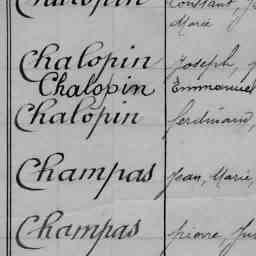 Chalopin Constant, J
Marie
Chalopin Joseph,
Chalopin Emmanuel
Chalopin ferdinand,
Champas Jean, Marie,
Champas pierre,